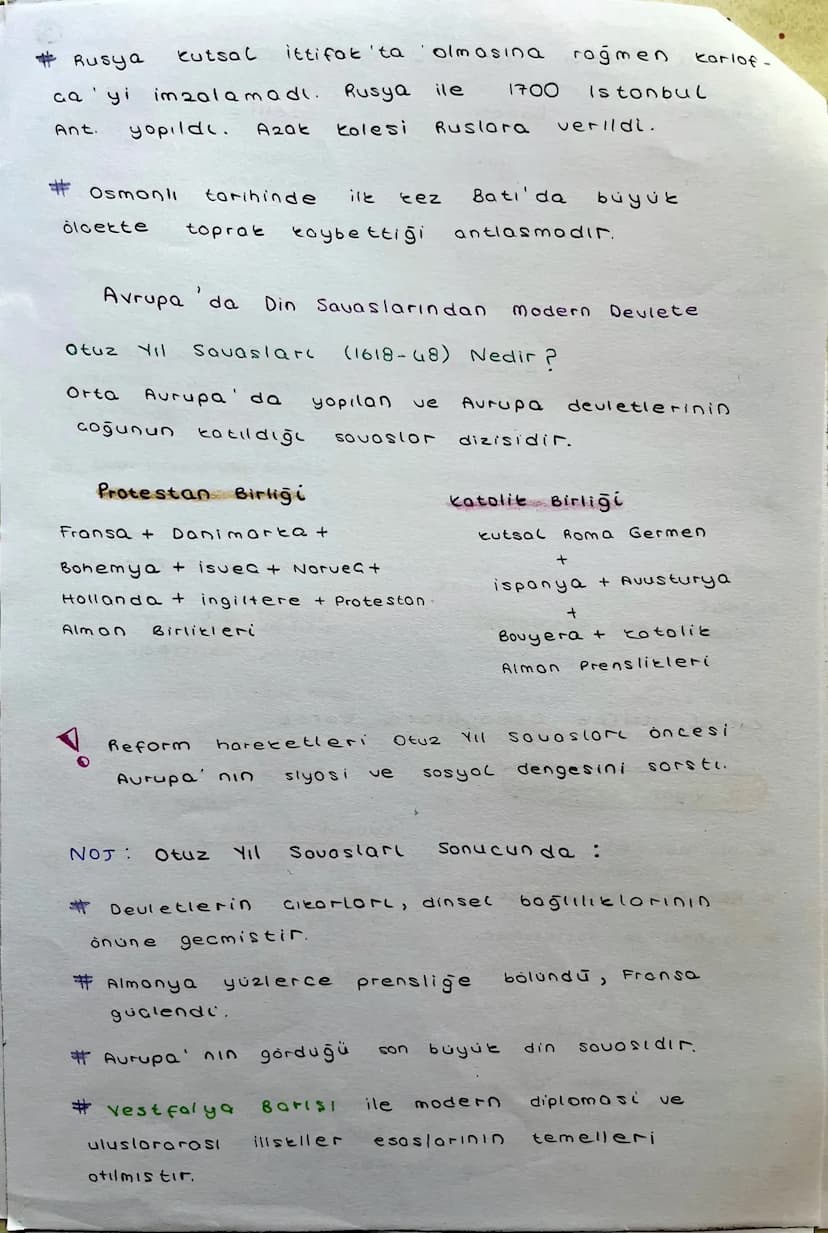 # Rusya kutsal ittifak'ta olmasına rağmen karlof-
ca'yi imzalamadı. Rusya ile 1700 istanbul
Ant. yapıldı. Azak kalesi Ruslara verildi.
# Osmanlı tarihinde ilk kez Batı'da büyük
ölcekte toprak kaybettiği antlasmadır.
Avrupa'da Din Savaslarından Modern Devlete
Otuz Yıl Savasları (1618-48) Nedir?
Orta Avrupa'da yapılan ve Avrupa devletlerinin
coğunun katıldığı savaslar dizisidir.
Protestan Birliği
Fransa + Danimarka +
Bohemya + isvec + Norvec +
Hollanda + ingiltere + Protestan
Alman Birlikleri
Katolik Birliği
kutsal Roma Germen
+
ispanya + Avusturya
+
Bavyera + katolik
Alman Prenslikleri
! Reform hareketleri Otuz Yıl savasları öncesi
Avrupa'nın siyasi ve sosyal dengesini sarstı.
NOT: Otuz Yıl Savasları Sonucunda:
# Devletlerin cıkarları, dinsel bağlılıklarının
önüne gecmistir.
# Almanya yüzlerce prensliğe bölündü, Fransa
güclendi.
# Avrupa'nın gördüğü son büyük din savasıdır.
# Vestfalya Barısı ile modern diplomasi ve
uluslararası iliskiler esaslarının temelleri
atılmıstır.